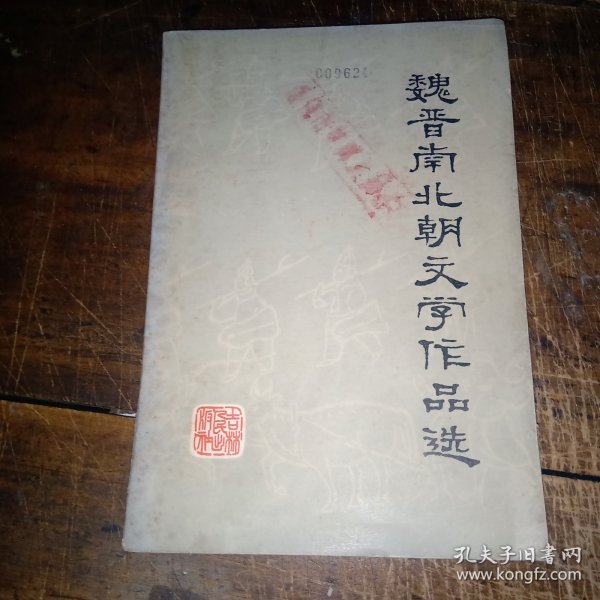 009624
魏晋南北朝文学作品选
吉林人民出版社
孔夫子旧书网
www.kongfz.com